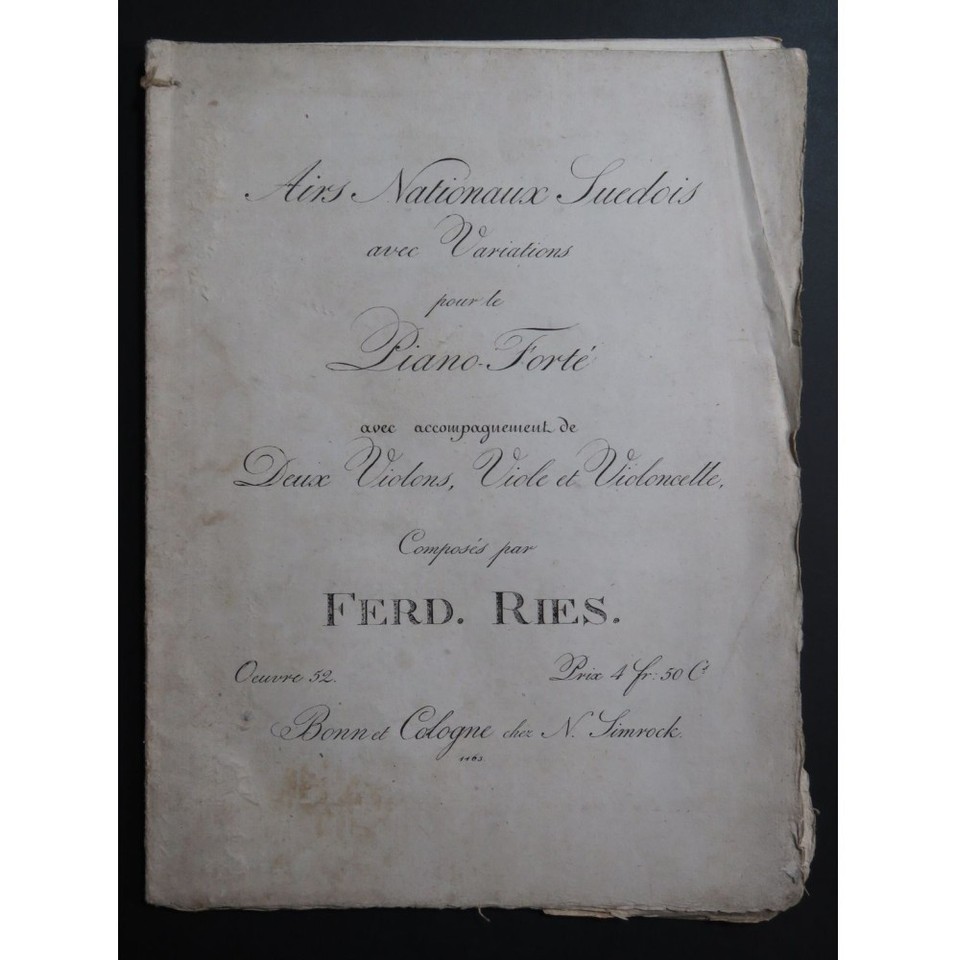 Airs Nationaux Suedois
avec Variations
pour le
Piano-Forté
avec accompagnement de
Deux Violons, Viole et Violoncelle,
Composés par
FERD. RIES.
Oeuvre 52. Prix 4 fr: 50 Cs
Bonn et Cologne chez N. Simrock.
1163